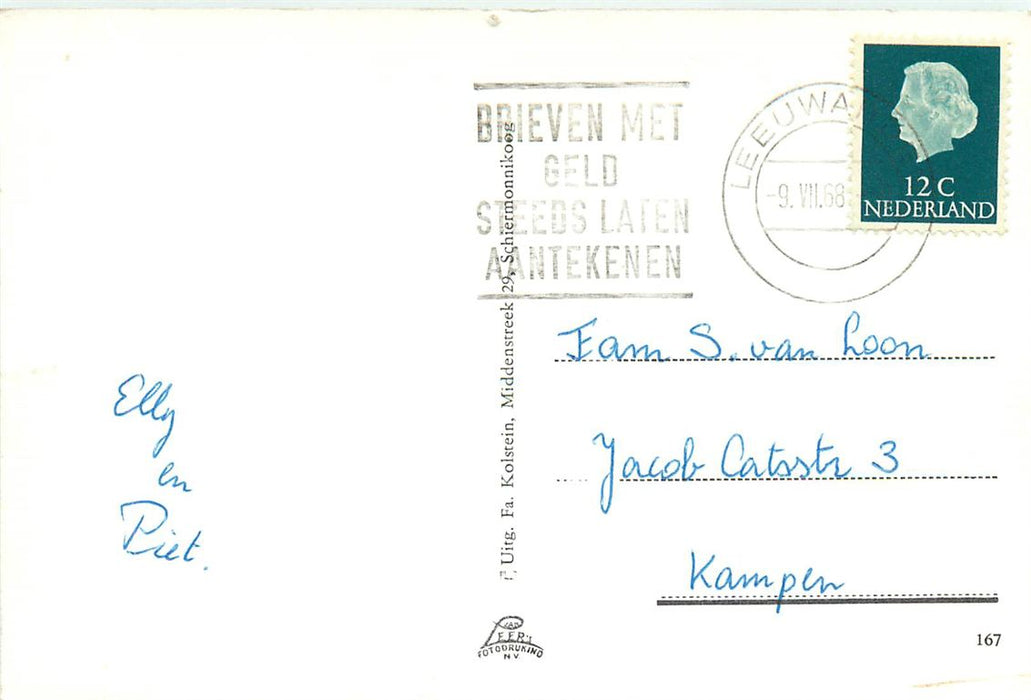 BRIEVEN MET
GELD
STEEDS LATEN
AANTEKENEN
LEEUWA
-9.VII.68
12 C
NEDERLAND
Elly
en
Piet.
Uitg. Fa. Kolstein, Middenstreek 29, Schiermonnikoog
Fam S. van Loon
Jacob Catsstr 3
Kampen
FOTODRUKIND
N.V.
167